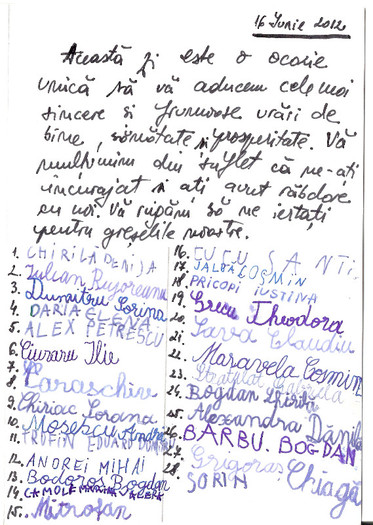 16 Iunie 2012
Această zi este o ocazie
unică să vă aducem cele mai
sincere și frumoase urări de
bine, sănătate și prosperitate. Vă
mulțumim din suflet că ne-ați
încurajat și ați avut răbdare
cu noi. Vă rugăm să ne iertați
pentru greșelile noastre.
1. CHIRILĂ DENISA
2. Iulian Bujoreanu
3. Dumitru Sorina
4. DARIA ELENA
5. ALEX PETRESCU
6. Ciuraru Ilie
7.
8. Caraschiv
9. Chiriac Ioana
10. Mosescu Andra
11. TRUFIN EDUARD
12. ANDREI MIHAI
13. Bodoros Bogdan
14.
15. Mitrofan
16. CUCU SANTI
17. JALBĂ COSMIN
18. PRICOPI IUSTINA
19.
20. Grecu Theodora
21. Sava Claudiu
22. Maravela Cosmin
23. Gabriela
24. Bogdan
25. Alexandra Dănilă
26. BARBU. BOGDAN
27. Grigoraș
28. SORIN Chiagă